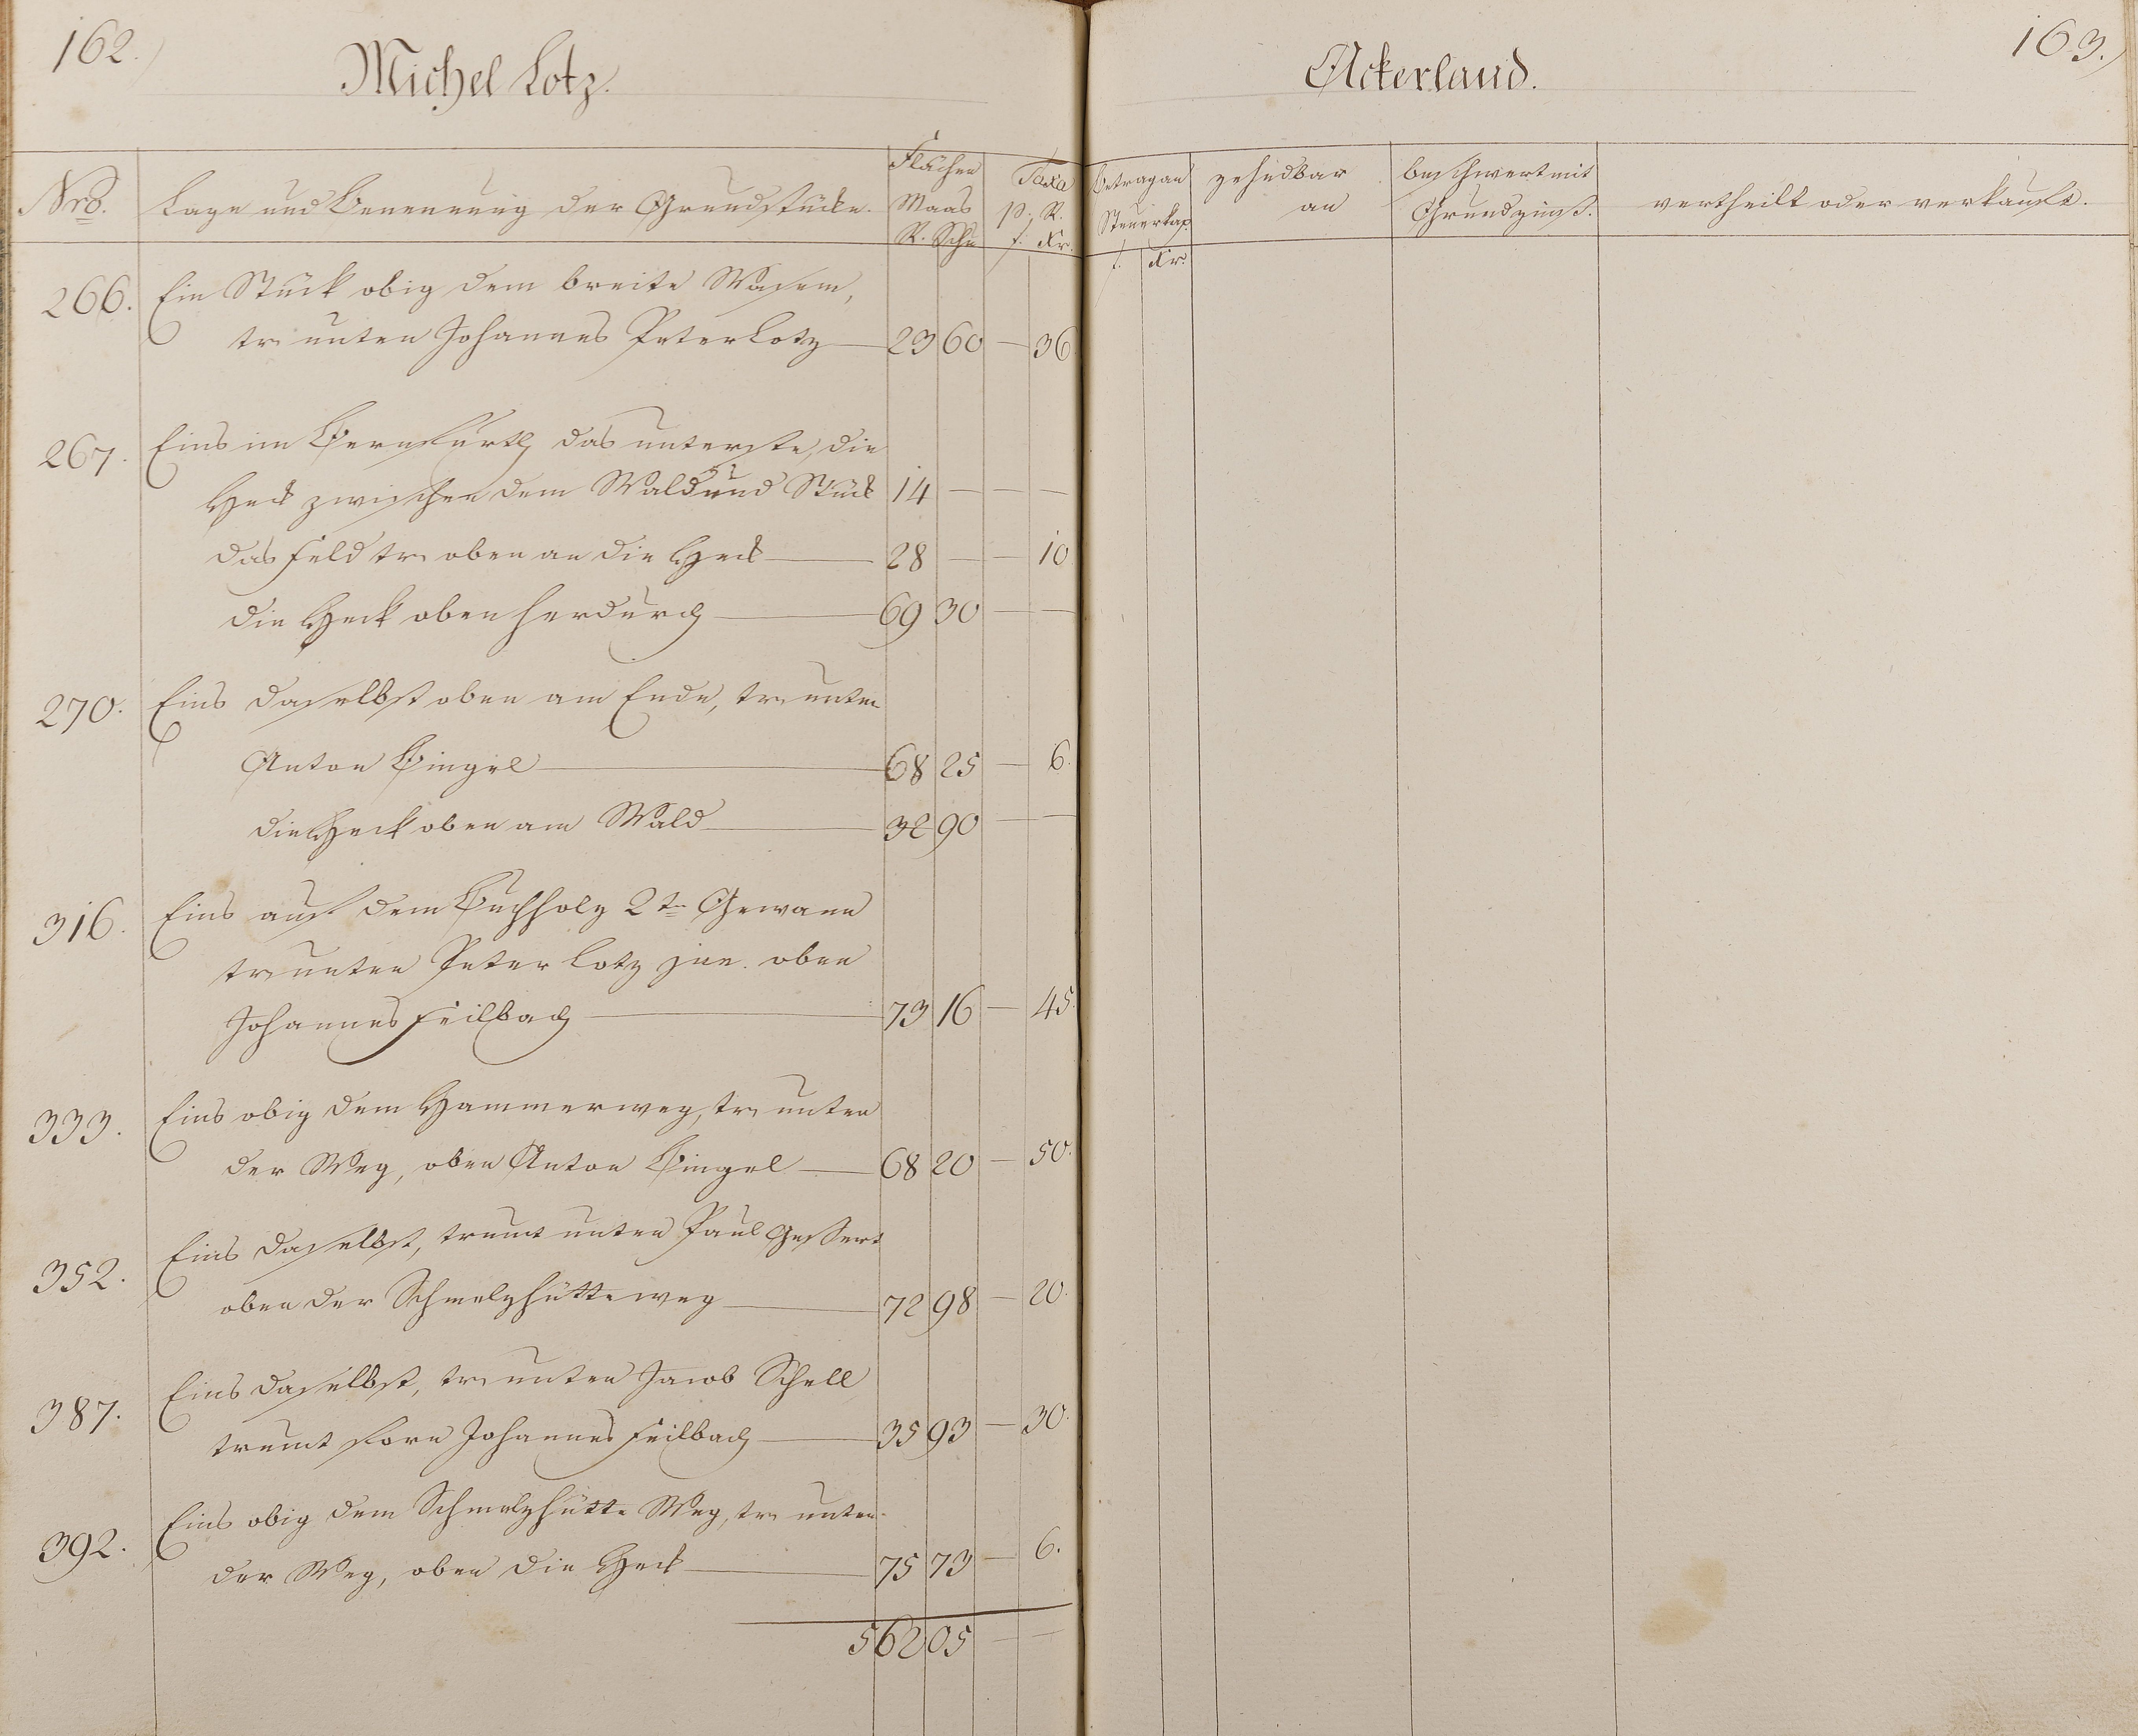 162.
Michel Lotz.
Nro.
Lage und Benennung der Grundstücke.
Flächen
Maas
R. Schu
Taxa
p. R.
f. Xr.
266. Ein Stück obig dem breite Wasem,
tr. unten Johannes Peter Lotz — 23 60 — 36
267. Eins im Bernfurth das unterste, die
Heck zwischen dem Wald und Stück 14 — — —
das Feld tr. oben an die Heck — 28 — — 10
die Heck oben herdurch — 69 30 — —
270. Eins daselbst oben am Ende, tr. unten
Anton Bingel — 68 25 — 6.
die Heck oben am Wald — 32 90 — —
316. Eins auf dem Buchholz 2te Gewann
tr. unten Peter Lotz jun. oben
Johannes Feilbach — 73 16 — 45.
333. Eins obig dem Hammerweg, tr. unten
der Weg, oben Anton Bingel — 68 20 — 50.
352. Eins daselbst, trumt unten Paul Gessert
oben der Schmelzhütteweg — 72 98 — 20.
387. Eins daselbst, tr. unten Jacob Schell
trumt forn Johannes Feilbach — 35 93 — 30.
392. Eins obig dem Schmelzhütte Weg, tr. unten
der Weg, oben die Heck — 75 73 — 6.
562 05 — —
163.
Ackerland.
Betrag an
Steuerkap.
f. Xr.
zehndbar
an
beschwert mit
Grundzinß.
vertheilt oder verkauft.